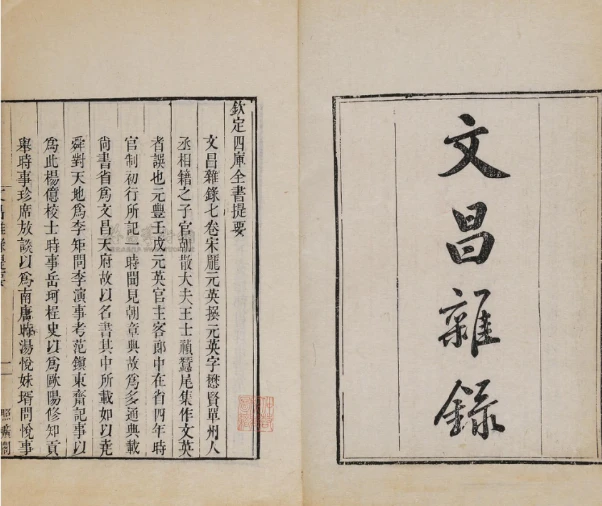 文昌雜錄
欽定四庫全書提要
文昌雜錄七卷宋龎元英撰元英字懋賢單州人
丞相籍之子官朝散大夫王士禎蠶尾集作文英
者誤也元豐壬戌元英官主客郎中在省四年時
官制初行所記一時聞見朝章典故為多通典載
尙書省為文昌天府故以名書其中所載如以堯
舜對天地為李矩問李演事考范鎭東齋記事以
為此楊億校士時事岳珂桯史以為歐陽修知貢
舉時事珍席放談以為南唐時湯悅妹壻問悅事
一
照曠閣